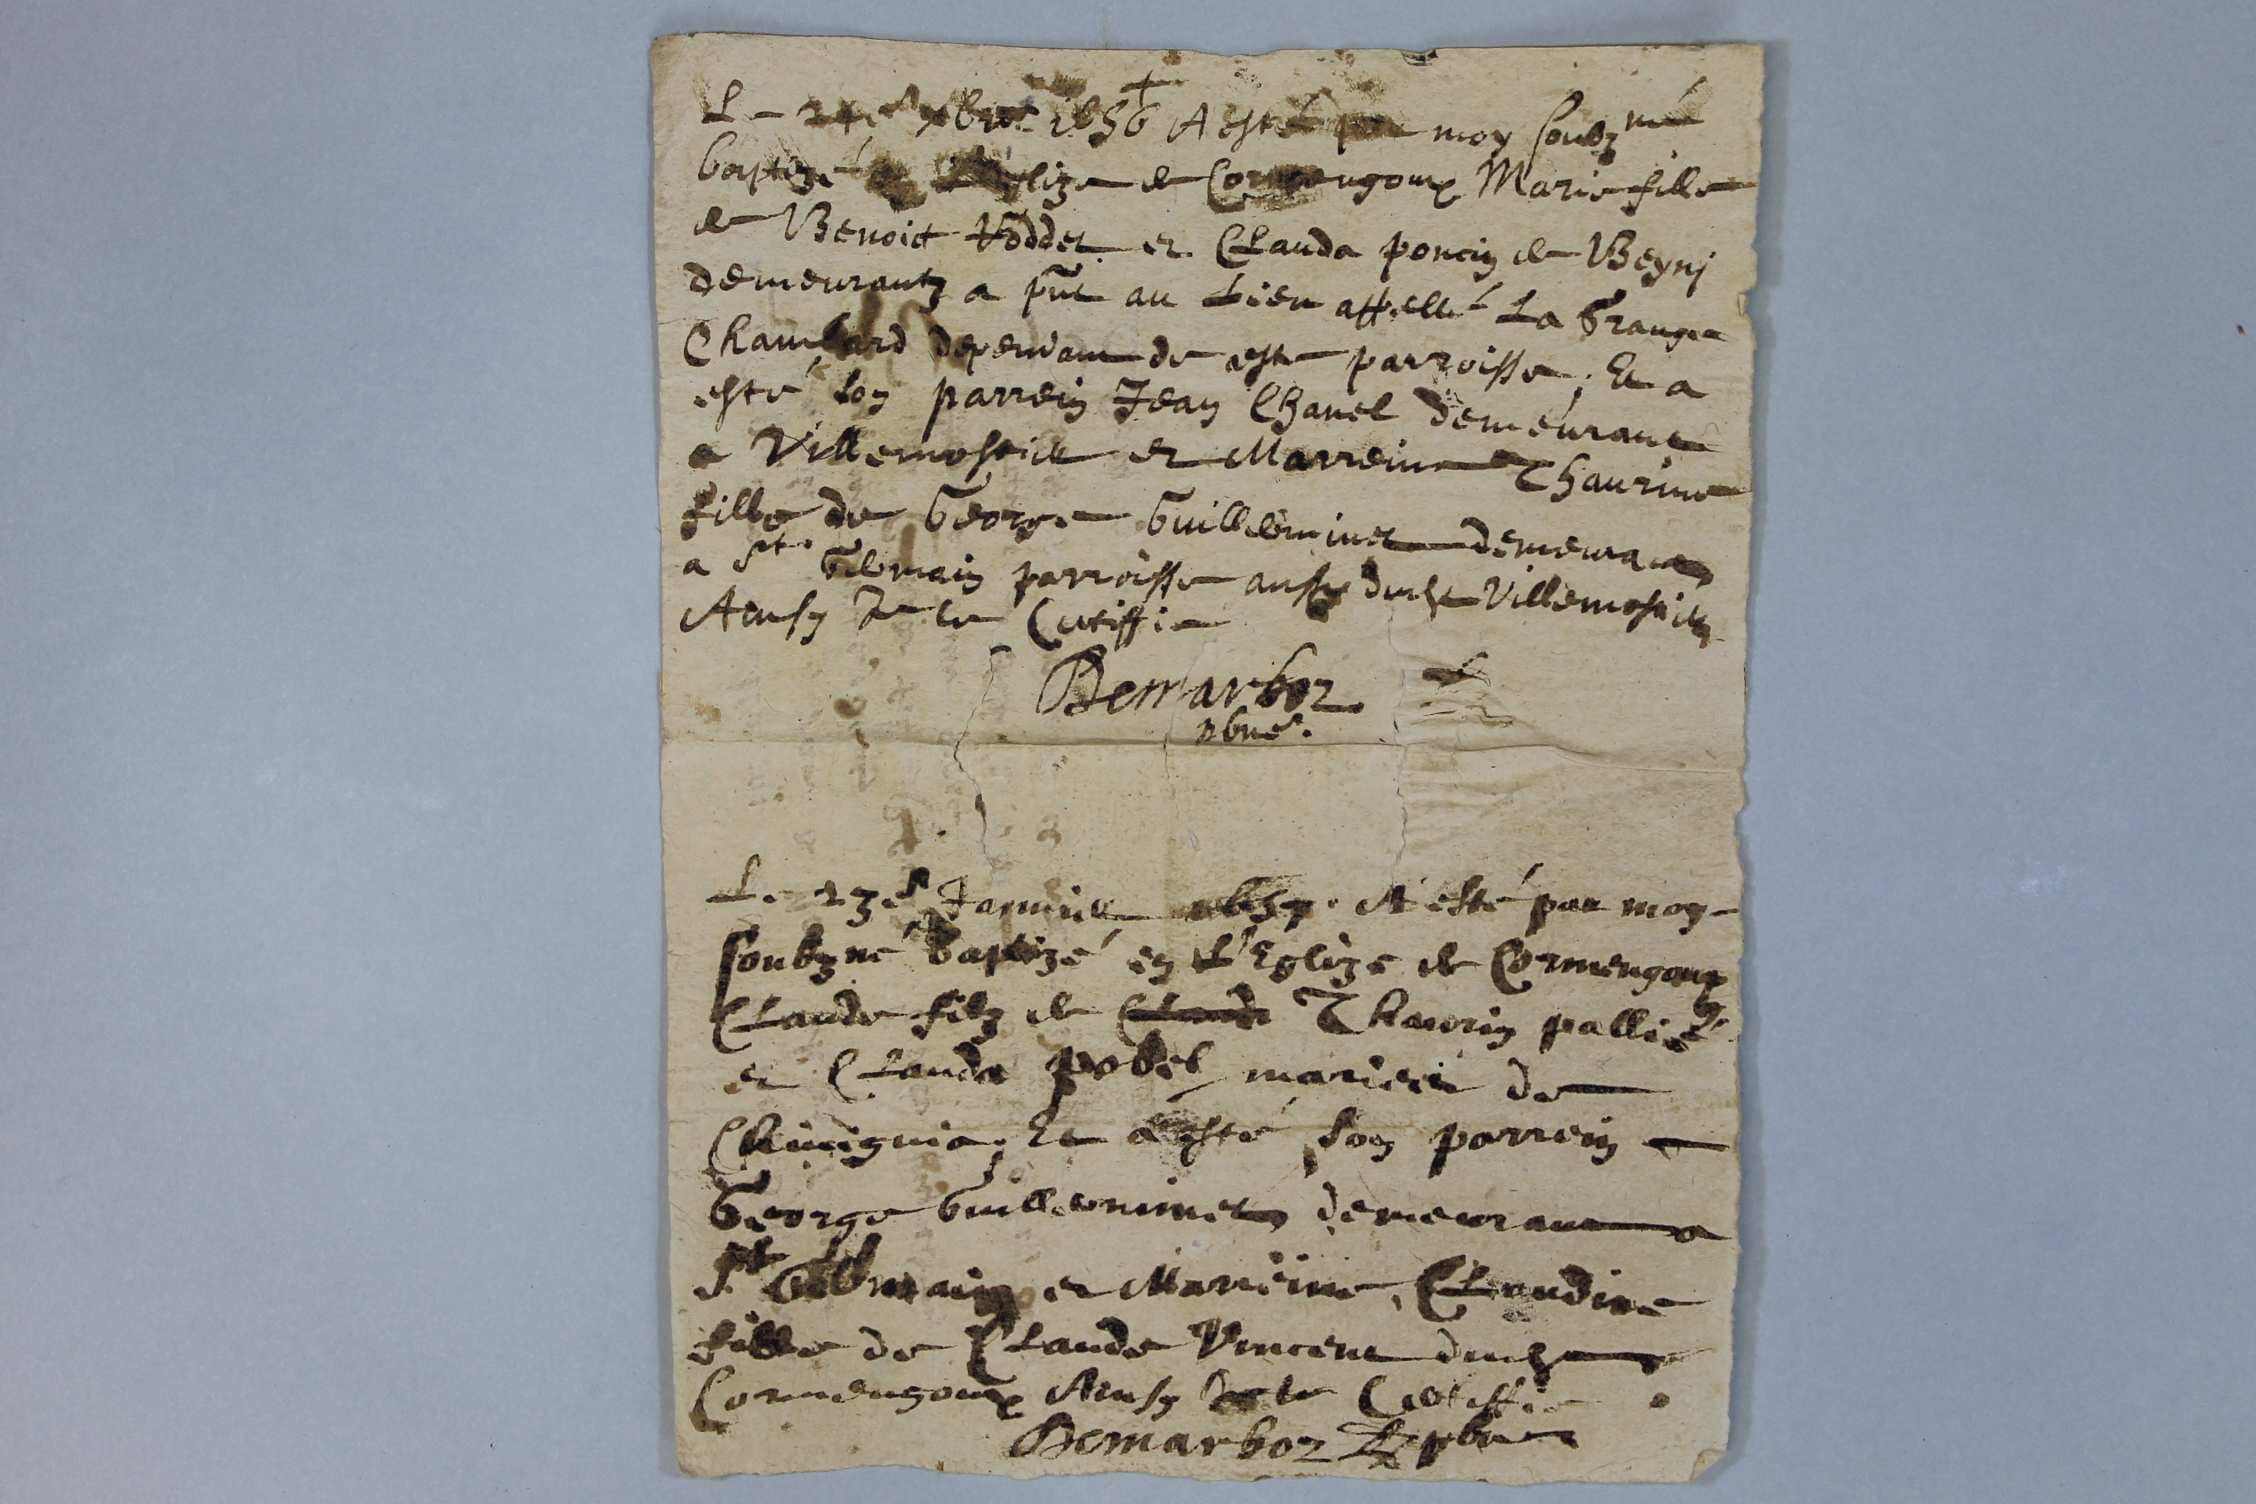 Le 24e xbre 1656 A esté par moy soubzné
baptizé en L'Eglize de Cormengoux Marie fille
de Benoict Voddet et Clauda poncin de Beyni
demeurantz a pñt au Lieu appellé La Grange
Chambard dependant de ceste parroisse, Et a
esté son parrein Jean Chanel demeurant
a Villemostier et Marreine Thaurine
fille de George Guilleminet demeurant
a St. Germain parroisse aussy dudt Villemostier
Ainsy Je le Certiffie
Demarboz
pbre.
Le 23e Janvier 1657. A esté par moy
soubzné baptizé en L'Eglize de Cormengoux
Claude filz de Claude Thaurin pallier
et Clauda pobel mariéz de
Chicignia, Et a esté son parrein
George Guilleminet demeurant a
St Germain et Marreine, Claudine
fille de Claude Vincent dudt
Cormengoux Ainsy Je le Certiffie
Demarboz pbre